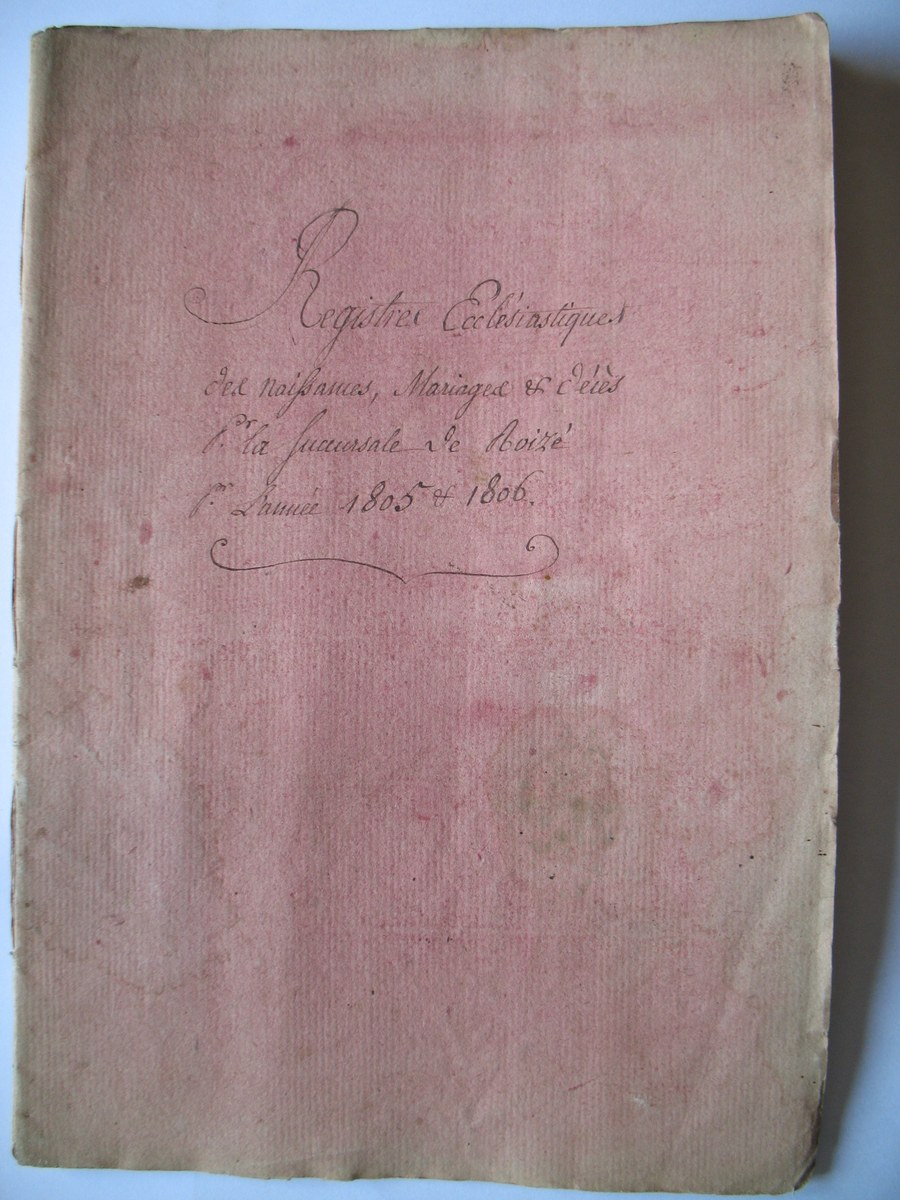 Registres Ecclésiastiques
des naissances, Mariages & décès
Pr. la succursale de Roizé
Pr. L'année 1805 & 1806.